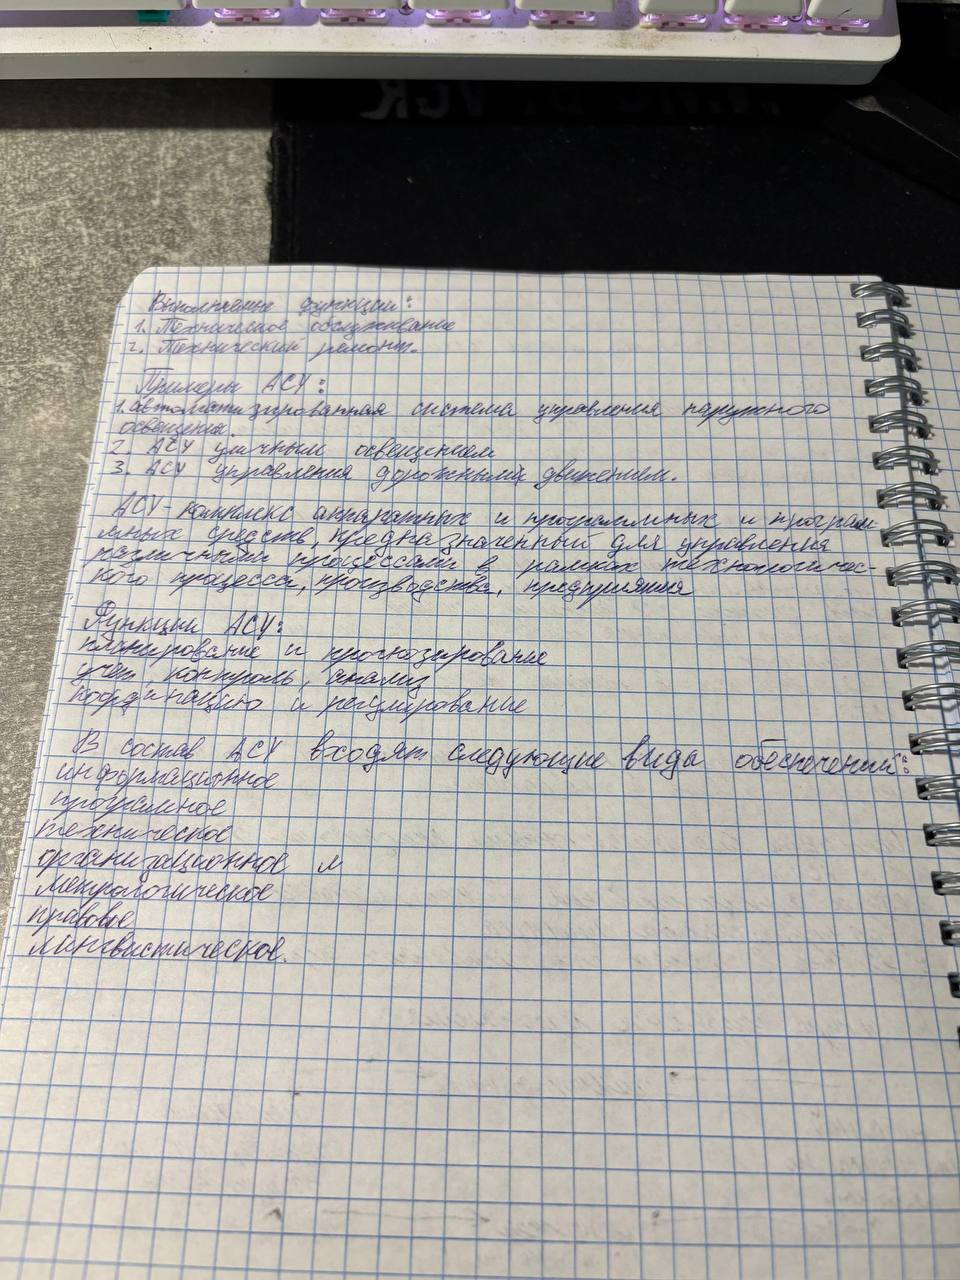 Выполняемые функции:
1. Техническое обслуживание
2. Технический ремонт.
Примеры АСУ:
1. автоматизированная система управления наружного
освещения.
2. АСУ уличным освещением
3. АСУ управления дорожными движением.
АСУ - комплекс аппаратных и программных и програм-
мных средств, предназначенный для управления
различными процессами в рамках технологичес-
кого процесса, производства, предприятия
Функции АСУ:
планирование и прогнозирование
учет, контроль, анализ
координацию и регулирование
В состав АСУ входят следующие виды обеспечений:
информационное
програмное
техническое
организационное м
метрологическое
правовое
лингвистическое.